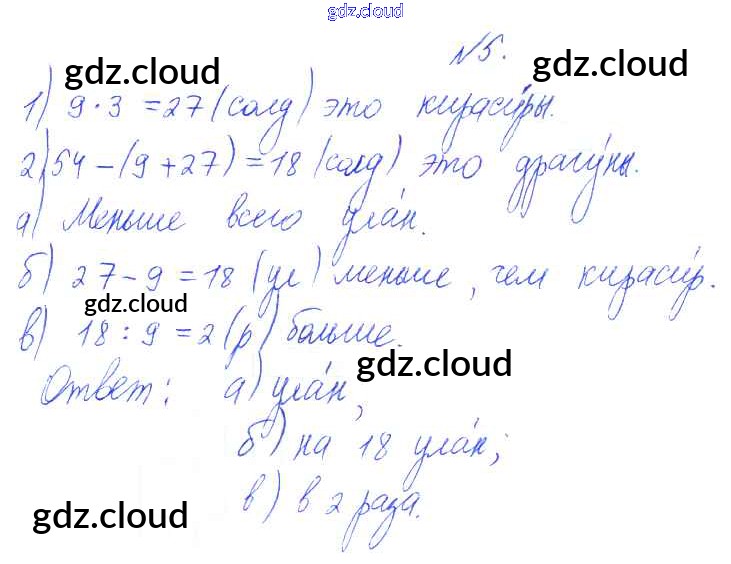 gdz.cloud
№5.
gdz.cloud gdz.cloud
1) 9·3 = 27 (солд) это кираси́ры.
2) 54 - (9 + 27) = 18 (солд) это драгу́ны.
а) Меньше всего ула́н.
б) 27 - 9 = 18 (ул) меньше, чем кираси́р.
gdz.cloud
в) 18 : 9 = 2 (р) больше.
gdz.cloud
Ответ: а) ула́н,
б) на 18 ула́н;
в) в 2 раза.
gdz.cloud